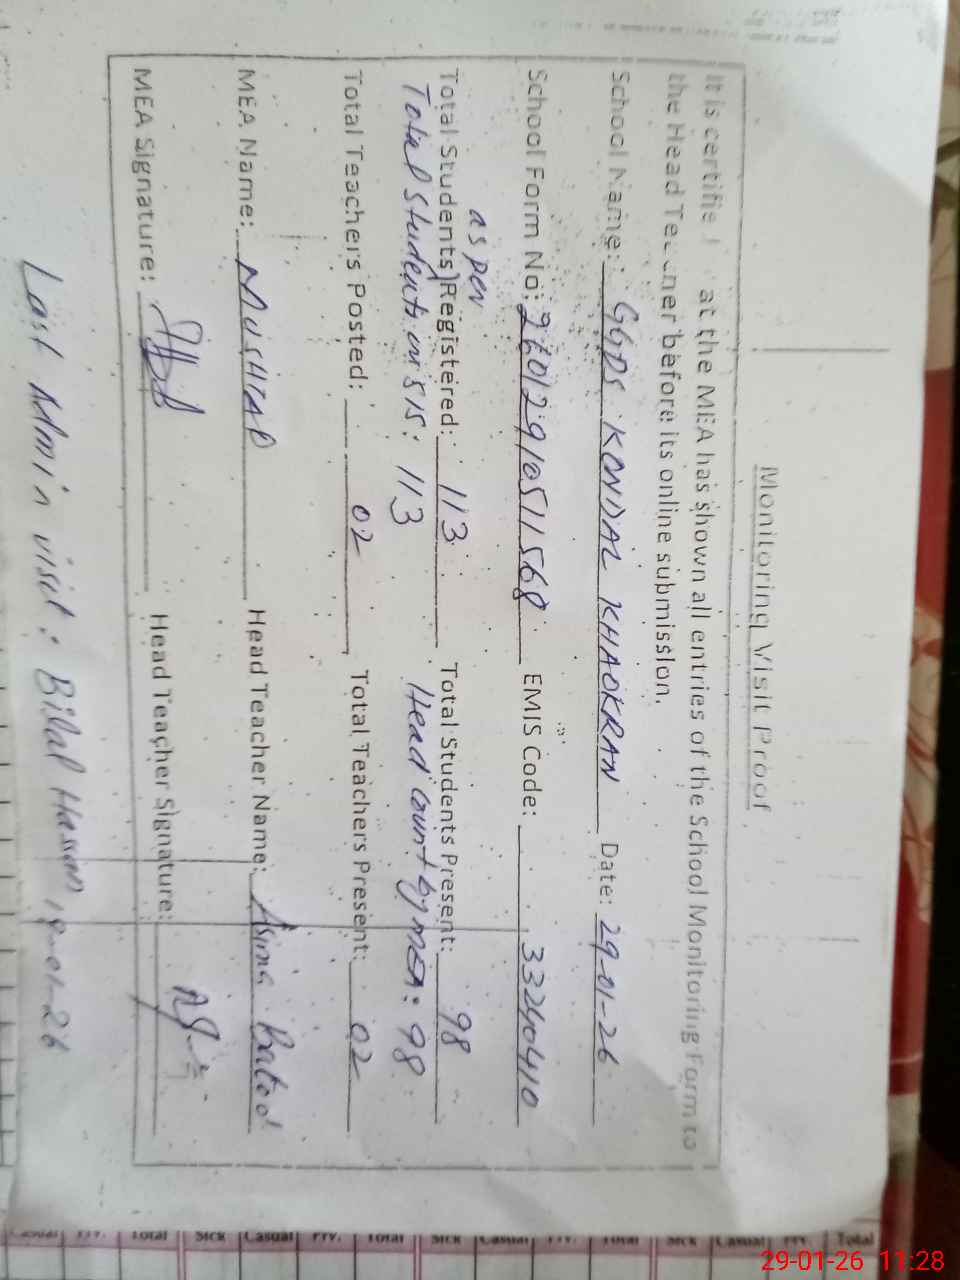 Monitoring Visit Proof
It is certifie at the MEA has shown all entries of the School Monitoring Form to
the Head Teacher before its online submission.
School Name: GGPS KONDAL KHAOKRAN Date: 29-01-26
School Form No: 26012910511568 EMIS Code: 33240410
as per
Total Students Registered: 113 Total Students Present: 98
Total students on SIS: 113 Head count by MEA: 98
Total Teachers Posted: 02 Total Teachers Present: 02
MEA Name: MUSHTAQ Head Teacher Name: Asma Batool
MEA Signature: Head Teacher Signature:
Last Admin visit: Bilal Hassan 19-01-26
Casual Prv. Total Sick Casual Prv. Total Sick Casual Prv. Total Sick Casual Prv. Total
29-01-26 11:28